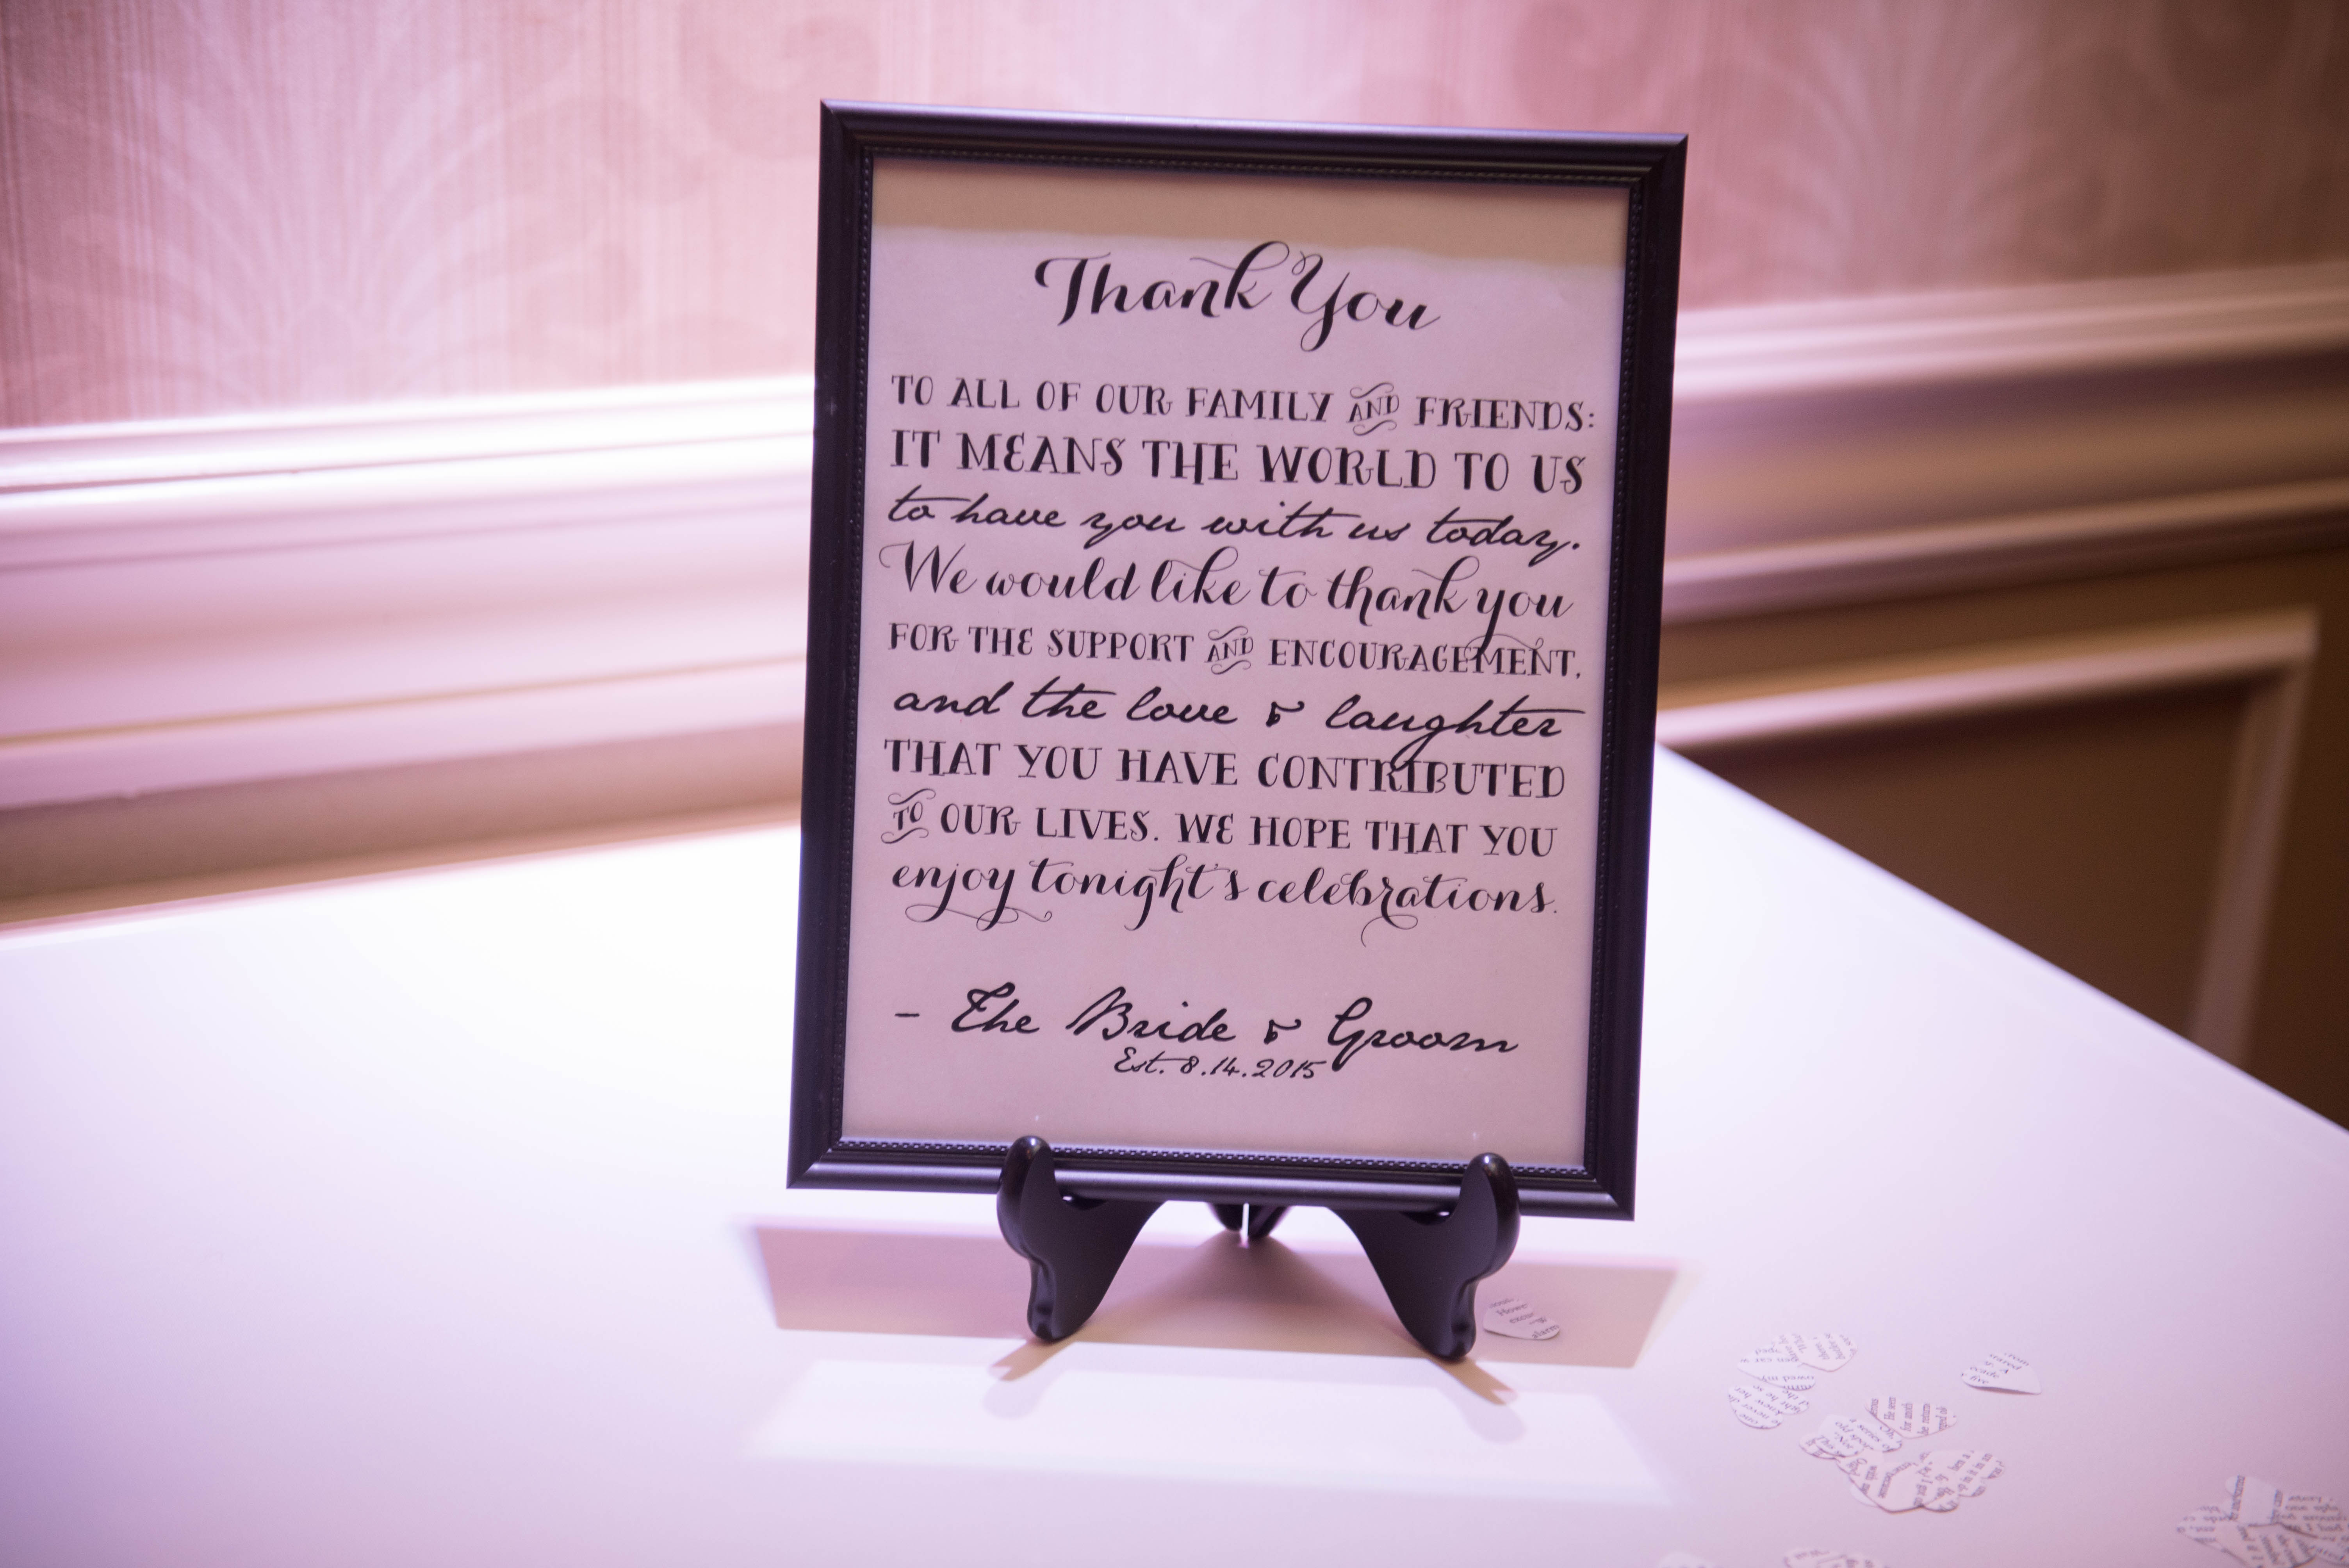 Thank You
TO ALL OF OUR FAMILY AND FRIENDS:
IT MEANS THE WORLD TO US
to have you with us today.
We would like to thank you
FOR THE SUPPORT AND ENCOURAGEMENT,
and the love & laughter
THAT YOU HAVE CONTRIBUTED
TO OUR LIVES. WE HOPE THAT YOU
enjoy tonight's celebrations.
- The Bride & Groom
Est. 8.14.2015